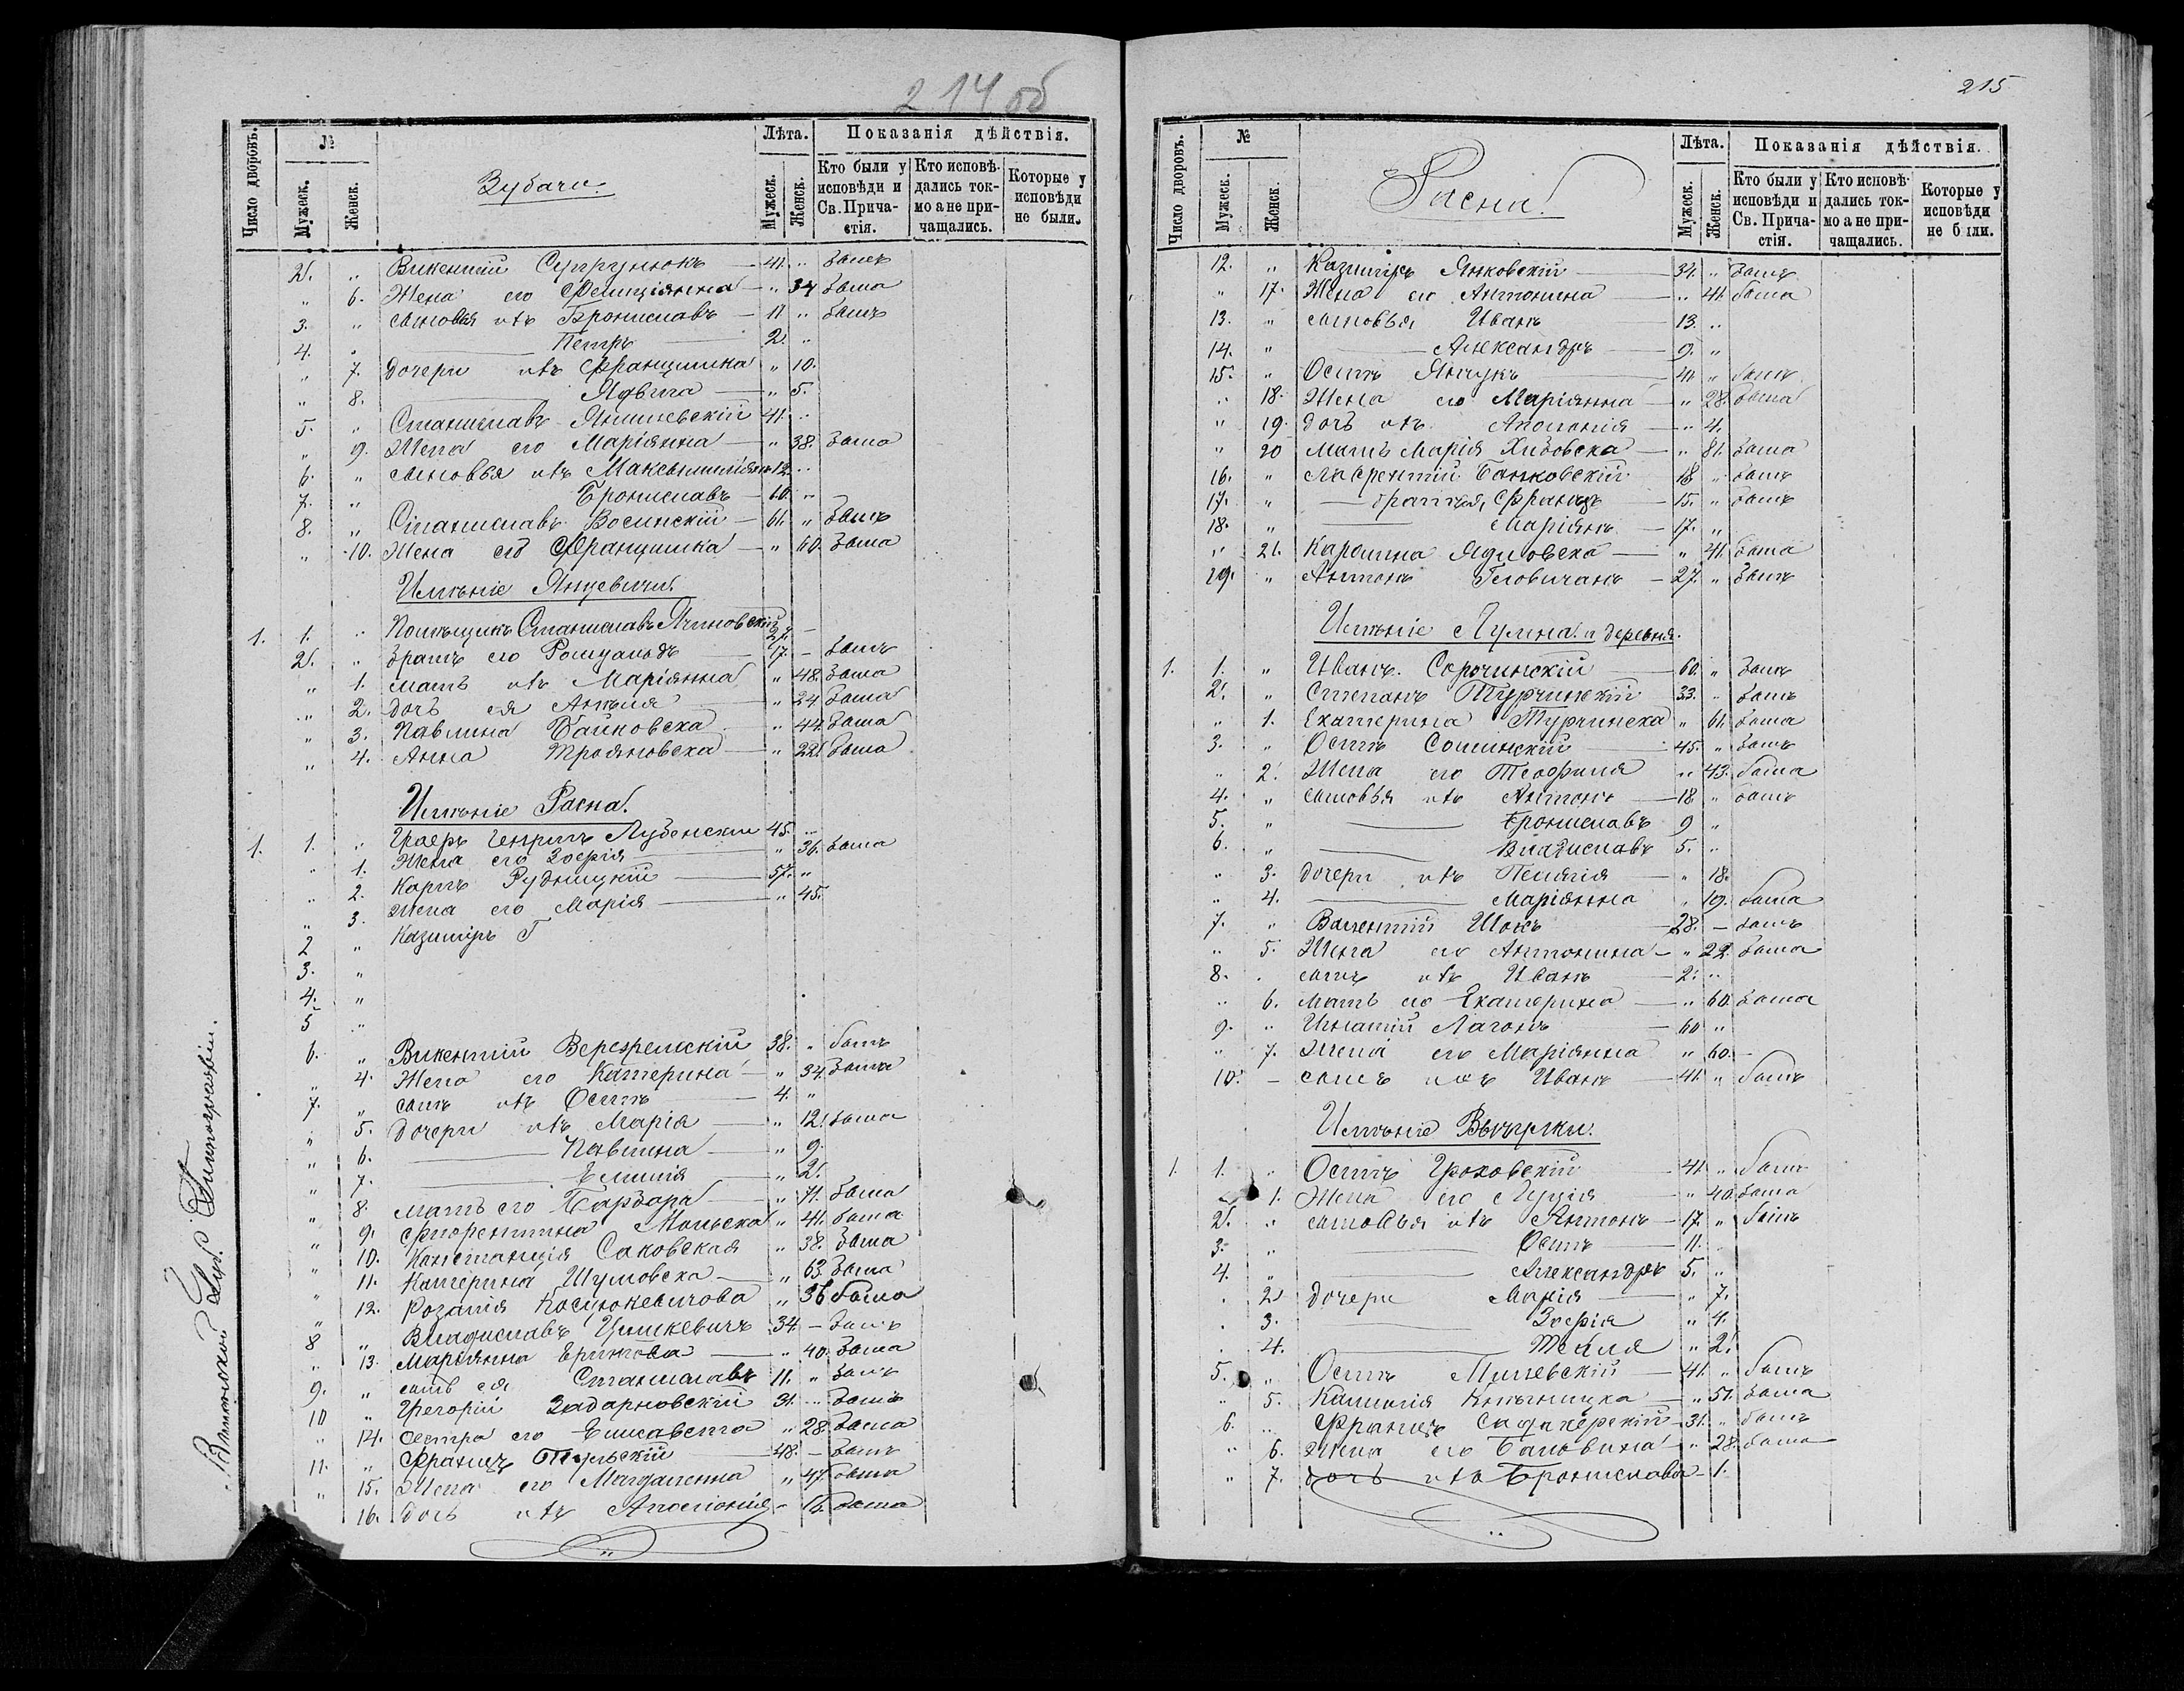 214об
Число дворовъ. | № | Зубачи. | Лѣта. | Показанія дѣйствія.
Мужеск. | Женск. | Мужеск. | Женск. | Кто были у исповѣди и Св. Прича-стія. | Кто исповѣ-дались ток-мо а не при-чащались. | Которые у исповѣди не были.
2. „ Викентій 41. „ былъ
„ 6. Жена его Фелиціянна „ 34 была
3. „ сыновья ихъ Брониславъ 11 „ былъ
4. „ Петръ 2. „
„ 7. дочери ихъ Францишка „ 10.
„ 8. Ядвига „ 5.
5. „ Станиславъ Янишевскій 41. „
„ 9. Жена его Маріянна „ 38. была
6. „ сыновья ихъ Максымиліянъ 12. „
7. „ Брониславъ 10. „
8. „ Станиславъ Восинскій 61. „ былъ
„ 10. Жена его Францишка „ 60. была
Имѣніе Янцевичи.
1. 1. „ Помѣщикъ Станиславъ Ячиновскій 27. –
2. „ братъ его Ромуальдъ 17. – былъ
„ 1. мать ихъ Маріянна „ 48. была
„ 2. дочь ея Анеля 24 была
„ 3. Павлина Байковска „ 44. была
„ 4. Анна Трояновска „ 22. была
Имѣніе Расна.
1. 1. „ Графъ Генрихъ Лубенскій 45. „
„ 1. Жена его Зофія „ 36. была
„ 2. Карлъ Рудницкій 57. „
„ 3. Жена его Марія „ 45.
2 „ Казиміръ Г
3. „
4. „
5 „
6. „ Викентій 38. „ былъ
„ 4. Жена его Катерина „ 34. была
7. „ сынъ ихъ Осипъ 4. „
„ 5. Дочери ихъ Марія „ 12. была
„ 6. Павлина „ 9.
„ 7. Емилія „ 2.
„ 8. мать его Барбара „ 71. была
„ 9. Флорентина Мольска „ 41. была
„ 10. Констанція Саковская „ 38. была
„ 11. Катерина Шумовска „ 63. была
„ 12. Розалія Косцюкевичова „ 36 была
8 „ Владиславъ Цишкевичъ 34 – былъ
„ 13. Маріянна „ 40. была
9. „ сынъ ея Станиславъ 11. „ былъ
10 „ Грегорій Задарновскій 31. – былъ
„ 14. Сестра его Елисавета „ 28. была
11. „ Францъ 48. – былъ
„ 15. Жена его Магдаленна „ 47. была
„ 16. Дочь ихъ Аполонія – 16. была
Виленской Губ. Типографіи.
215
Число дворовъ. | № | Расна. | Лѣта. | Показанія дѣйствія.
Мужеск. | Женск. | Мужеск. | Женск. | Кто были у исповѣди и Св. Прича-стія. | Кто исповѣ-дались ток-мо а не при-чащались. | Которые у исповѣди не были.
12. „ Казиміръ Янковскій 34. „ былъ
„ 17. Жена его Антонина „ 41. была
13. „ сыновья Иванъ 13. „
14. „ Александръ 9. „
15. „ Осипъ Янчукъ 41. „ былъ
„ 18. Жена его Маріянна „ 28. была
„ 19. дочь ихъ Аполонія „ 4.
„ 20 мать Марія Хибовска „ 81. была
16. „ Лаврентій Банковскій 18 „ былъ
17. „ братья, Францъ 15. „ былъ
18. „ Маріянъ 17. „
„ 21. Каролина Ядловска „ 41. была
19. „ Антонъ Гловичанъ 27. „ былъ
Имѣніе Лумна и деревня.
1. 1. „ Иванъ Сорочинскій 60. „ былъ
2. „ Степанъ Турчинскій 33. „ былъ
„ 1. Екатерина Турчинска „ 61. была
3. „ Осипъ Сошинскій 45. „ былъ
„ 2. Жена его Теофиля „ 43. была
4. „ сыновья ихъ Антонъ 18. „ былъ
5. „ Брониславъ 9 „
6. „ Владиславъ 5. „
„ 3. дочери ихъ Пелагія „ 18.
„ 4. Маріянна „ 19. была
7. „ Валентій 28. – былъ
„ 5. Жена его Антонина „ 22. была
8. „ сынъ ихъ Иванъ 2. „
„ 6. Мать его Екатерина „ 60. была
9. „ Игнатій 60 „
„ 7. Жена его Маріянна „ 60. –
10. – сынъ ихъ Иванъ 41. „ былъ
Имѣніе Вычулки.
1. 1. „ Осипъ Гроховскій 41. „ былъ
„ 1. Жена его Луція „ 40. была
2. „ сыновья ихъ Антонъ 17. „ былъ
3. „ Осипъ 11. „
4. „ Александръ 5. „
„ 2. дочери Марія „ 7.
„ 3. Зофія „ 4.
„ 4. Текля „ 2.
5. „ Осипъ 41. „ былъ
„ 5. Камилія „ 51. была
6. „ Францъ 31. „ былъ
„ 6. Жена его „ 28. была
„ 7. дочь ихъ Бронислава – 1.